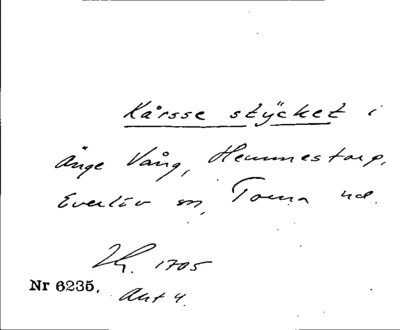 Kårsse stÿcket i
Änge Vång, Hemmestorp,
Everlöv sn, Torna hd.
Lh. 1705
Nr 6235. Akt 4.